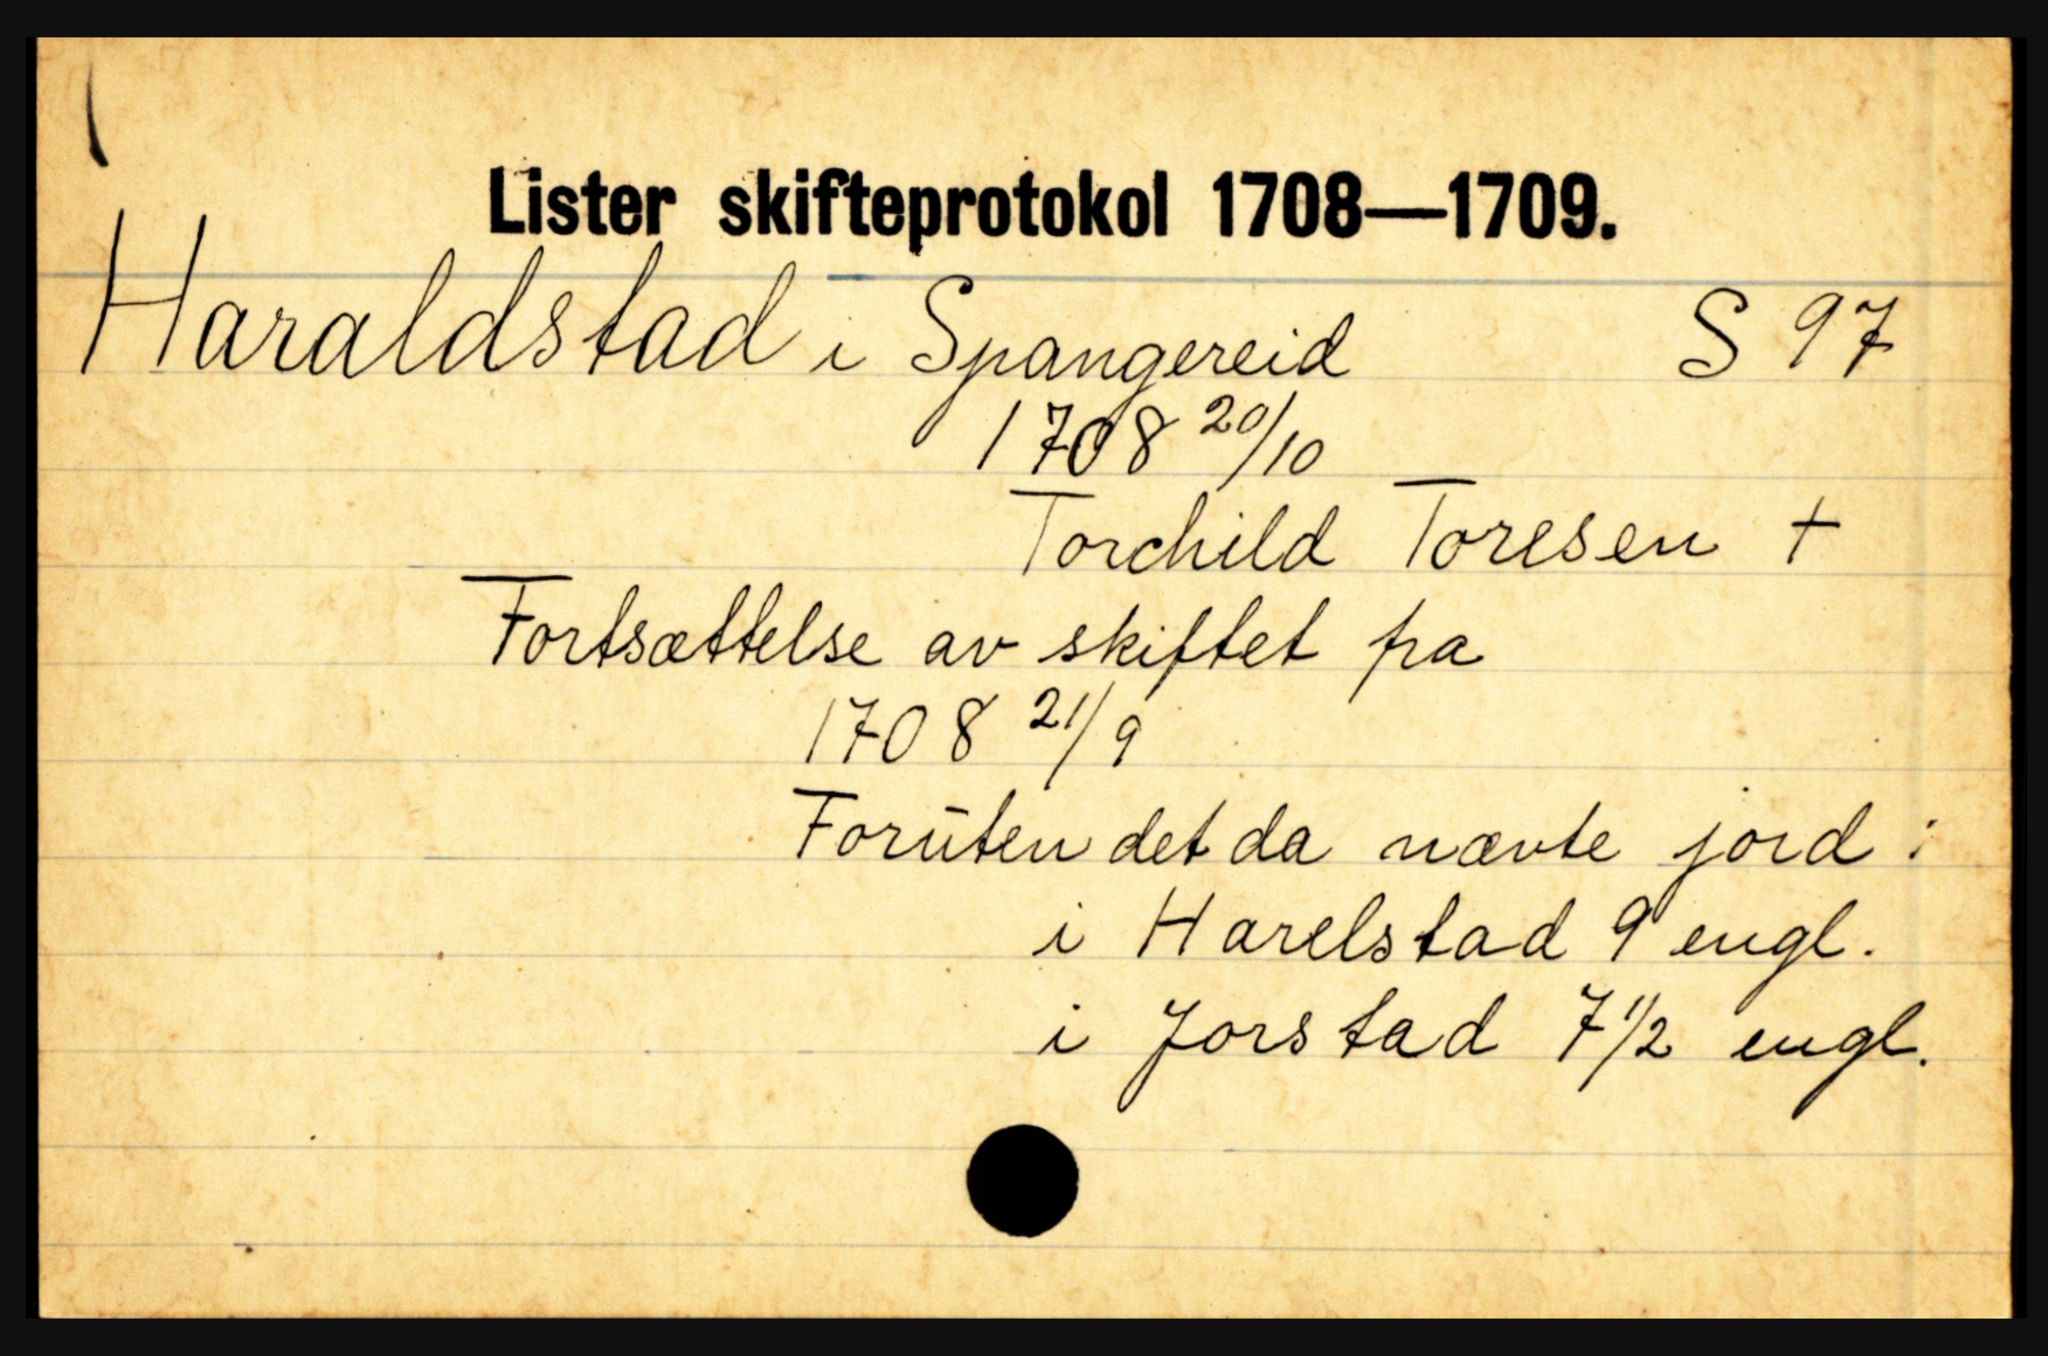 Lister skifteprotokol 1708—1709.
Haraldstad i Spangereid S 97
1708 20/10
Torchild Toresen +
Fortsættelse av skiftet fra
1708 21/9
Forūten det da nævte jord :
i Harelstad 9 engl.
i Jorstad 7 1/2 engl.